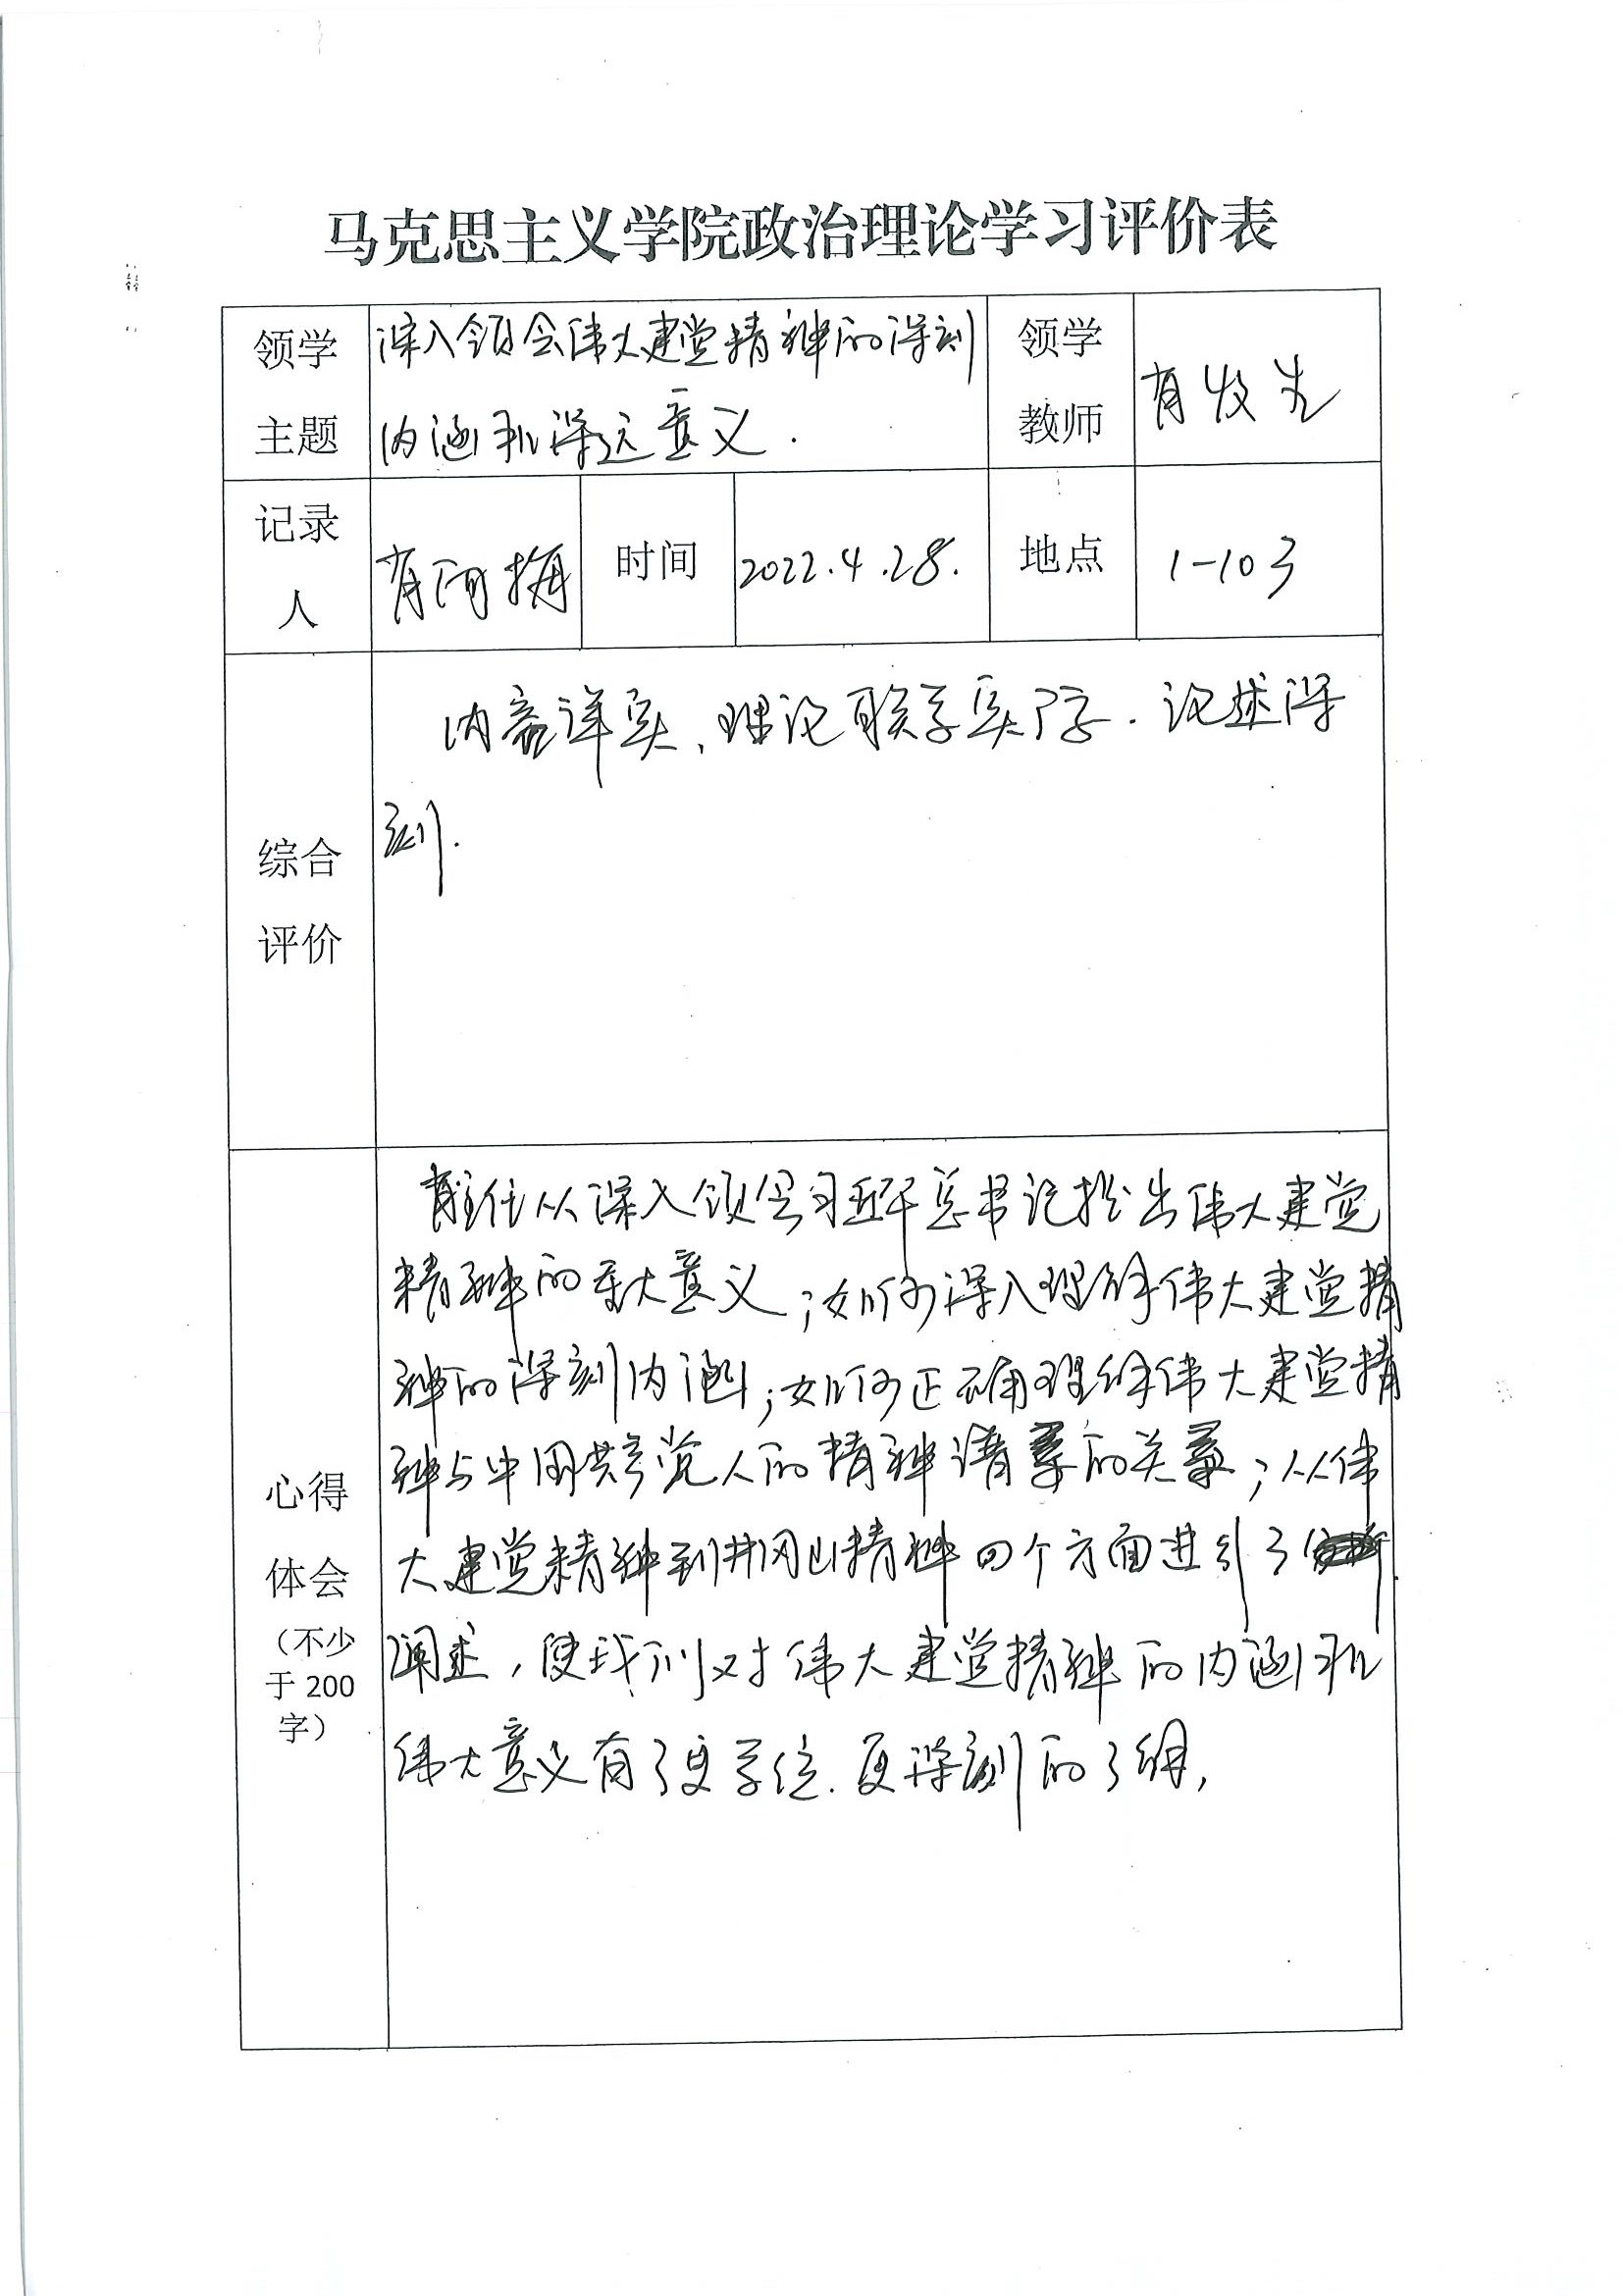 马克思主义学院政治理论学习评价表
领学
主题
深入领会伟大建党精神的深刻
内涵和深远意义.
领学
教师
肖牧
记录
人
肖阿梅
时间
2022.4.28.
地点
1-103
综合
评价
内容详实、理论联系实际.论述深
刻.
心得
体会
(不少
于200
字)
肖主任从深入领会习近平总书记提出伟大建党
精神的重大意义;如何深入理解伟大建党精
神的深刻内涵;如何正确理解伟大建党精
神与中国共产党人的精神谱系的关系;从伟
大建党精神到井冈山精神四个方面进行了
阐述,使我们对伟大建党精神的内涵和
伟大意义有了更全位.更深刻的了解,